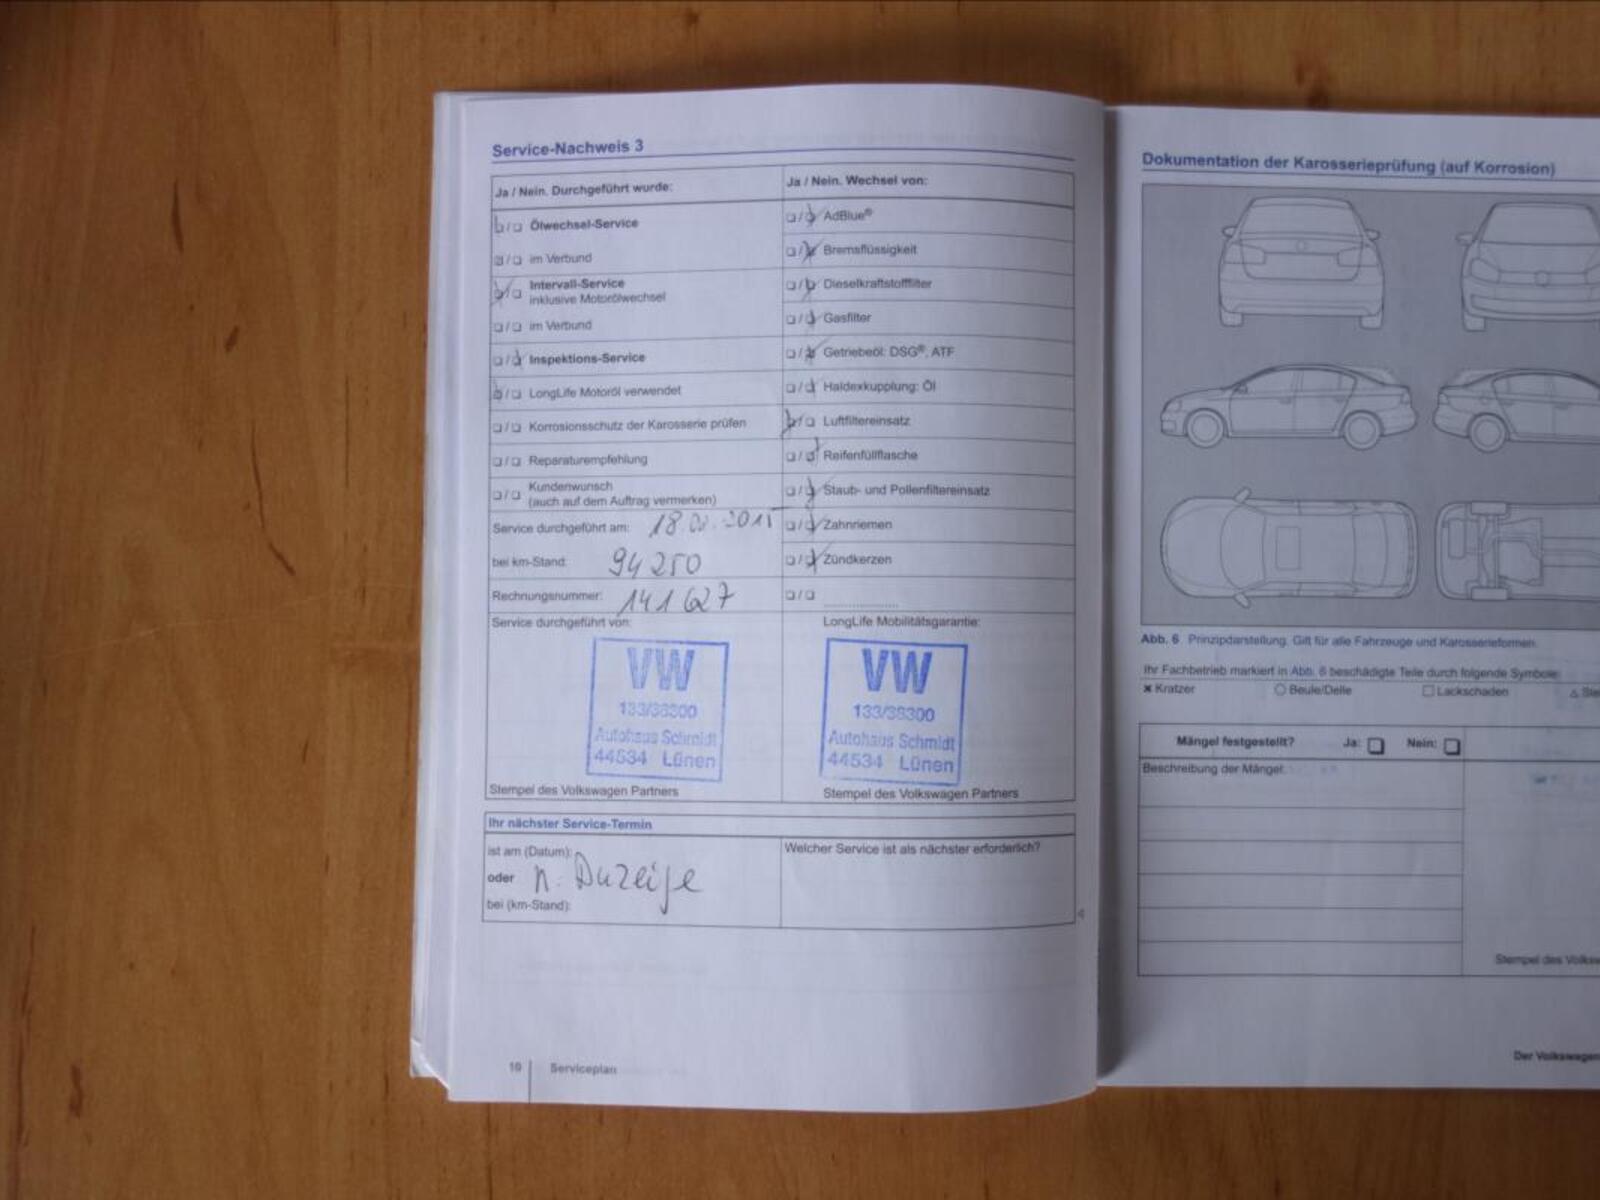 Service-Nachweis 3
Ja / Nein. Durchgeführt wurde:
Ölwechsel-Service
im Verbund
Intervall-Service
inklusive Motorölwechsel
im Verbund
Inspektions-Service
LongLife Motoröl verwendet
Korrosionsschutz der Karosserie prüfen
Reparaturempfehlung
Kundenwunsch
(auch auf dem Auftrag vermerken)
Service durchgeführt am: 2015
bei km-Stand: 94 250
Rechnungsnummer: 141 627
Ja / Nein. Wechsel von:
AdBlue®
Bremsflüssigkeit
Dieselkraftstofffilter
Gasfilter
Getriebeöl: DSG®, ATF
Haldexkupplung: Öl
Luftfiltereinsatz
Reifenfüllflasche
Staub- und Pollenfiltereinsatz
Zahnriemen
Zündkerzen
Service durchgeführt von:
VW
133/38300
Autohaus Schmidt
44534 Lünen
Stempel des Volkswagen Partners
LongLife Mobilitätsgarantie:
VW
133/38300
Autohaus Schmidt
44534 Lünen
Stempel des Volkswagen Partners
Ihr nächster Service-Termin
ist am (Datum):
oder n. Anzeige
bei (km-Stand):
Welcher Service ist als nächster erforderlich?
10 Serviceplan
Dokumentation der Karosserieprüfung (auf Korrosion)
Abb. 6 Prinzipdarstellung. Gilt für alle Fahrzeuge und Karosserieformen.
Ihr Fachbetrieb markiert in Abb. 6 beschädigte Teile durch folgende Symbole:
Kratzer Beule/Delle Lackschaden
Mängel festgestellt? Ja: Nein:
Beschreibung der Mängel:
Stempel des
Der Volkswagen